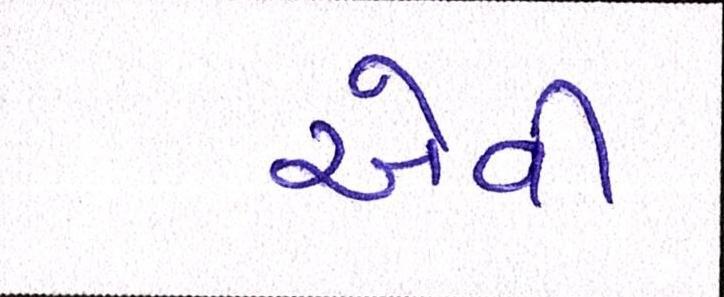 એવી